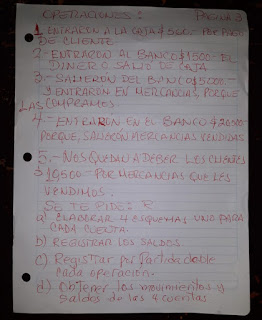 OPERACIONES: PÁGINA 3
1. ENTRARON A LA CAJA $5000.- POR PAGO
DE CLIENTE.
2.- ENTRARON AL BANCO $1500.- EL
DINERO SALIO DE CAJA
3.- SALIERON DEL BANCO $5000.-
Y ENTRARON EN MERCANCIAS, PORQUE
LAS COMPRAMOS
4.- ENTRARON EN EL BANCO $20000.-
PORQUE, SALIERON MERCANCIAS VENDIDAS
5.- NOS QUEDAN A DEBER LOS CLIENTES
$9500.- POR MERCANCIAS QUE LES
VENDIMOS.
SE TE PIDE: R
a) ELABORAR 4 ESQUEMAS UNO PARA
CADA CUENTA.
b) REGISTRAR LOS SALDOS
c) Registrar por Partida doble
cada operación.
d) Obtener los movimientos y
saldos de las 4 cuentas